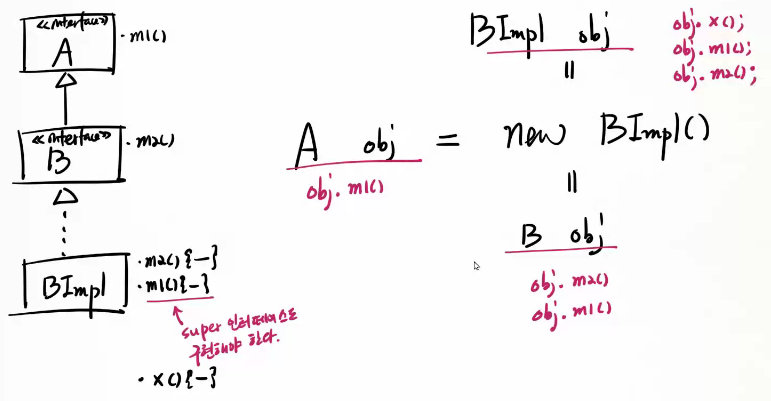 <<interface>>
A
· m1()
<<interface>>
B
· m2()
BImpl
· m2(){-}
· m1(){-}
super 인터페이스도
구현해야 한다.
· x(){-}
BImpl obj
obj. x();
obj. m1();
obj. m2();
=
A obj = new BImpl()
obj. m1()
=
B obj
obj. m2()
obj. m1()